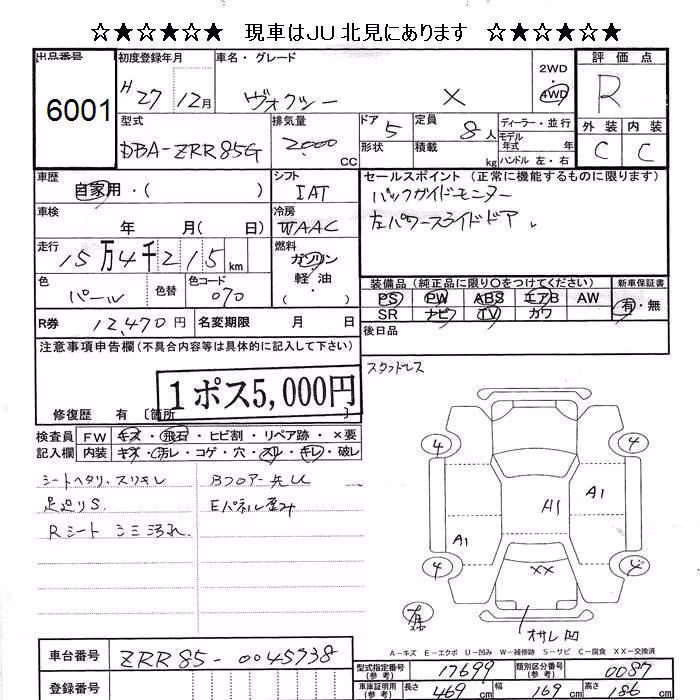 ☆★☆★☆★ 現車はJU北見にあります ☆★☆★☆★
出品番号 初度登録年月 車名・グレード 2WD 評価点
6001 H27 12月 ヴォクシー X 4WD R
型式 排気量 ドア 定員 ディーラー・並行 外装 内装
DBA-ZRR85G 2000 CC 5 8人 モデル年式 年 C C
形状 積載 kg ハンドル 左・右
車歴 シフト セールスポイント (正常に機能するものに限ります)
自家用・( ) IAT バックガイドモニター
車検 年 月( 日) 冷房 WAAC 左パワースライドドア
走行 15万4千215km 燃料 ガソリン
軽・油
( )
色 パール 色替 色コード 070
装備品 (純正品に限り○をつけてください) 新車保証書
PS PW ABS エアB AW 有・無
SR ナビ TV カワ
R券 12,470円 名変期限 月 日
後日品
注意事項申告欄(不具合内容等は具体的に記入して下さい)
スタッドレス
1ポス5,000円
修復歴 有 〔箇所 〕
検査員 FW キズ・飛石・ヒビ割・リペア跡・×要
記入欄 内装 キズ・汚レ・コゲ・穴・スレ・キレ・破レ
シートヘタリ、スリキレ Bフロアー先U
足廻りS Eパネル歪み
Rシート シミ汚れ
4 4
A1 A1 A1
4 4
XX
オサレ凹
A-キズ E-エクボ U-凹み W-補修跡 S-サビ C-腐食 XX-交換済
車台番号 ZRR85-0045738
型式指定番号(参考) 17699 類別区分番号(参考) 0087
登録番号
車庫証明用(参考) 長さ 469cm 幅 169cm 高さ 186cm